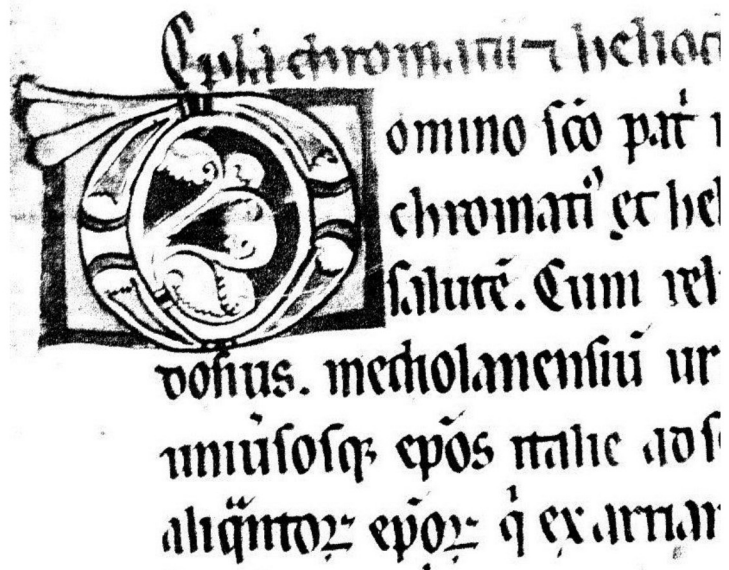 Epl̃a chromatii ⁊ heliod
Domino sc̃o pat̾
chromati᾽ et hel
salutē. Cum rel
dosius. mediolanensiū ur
uniu̾sosqꝫ ep̃os italie ad s
aliqͣntoꝝ ep̃oꝝ qͥ ex arrian